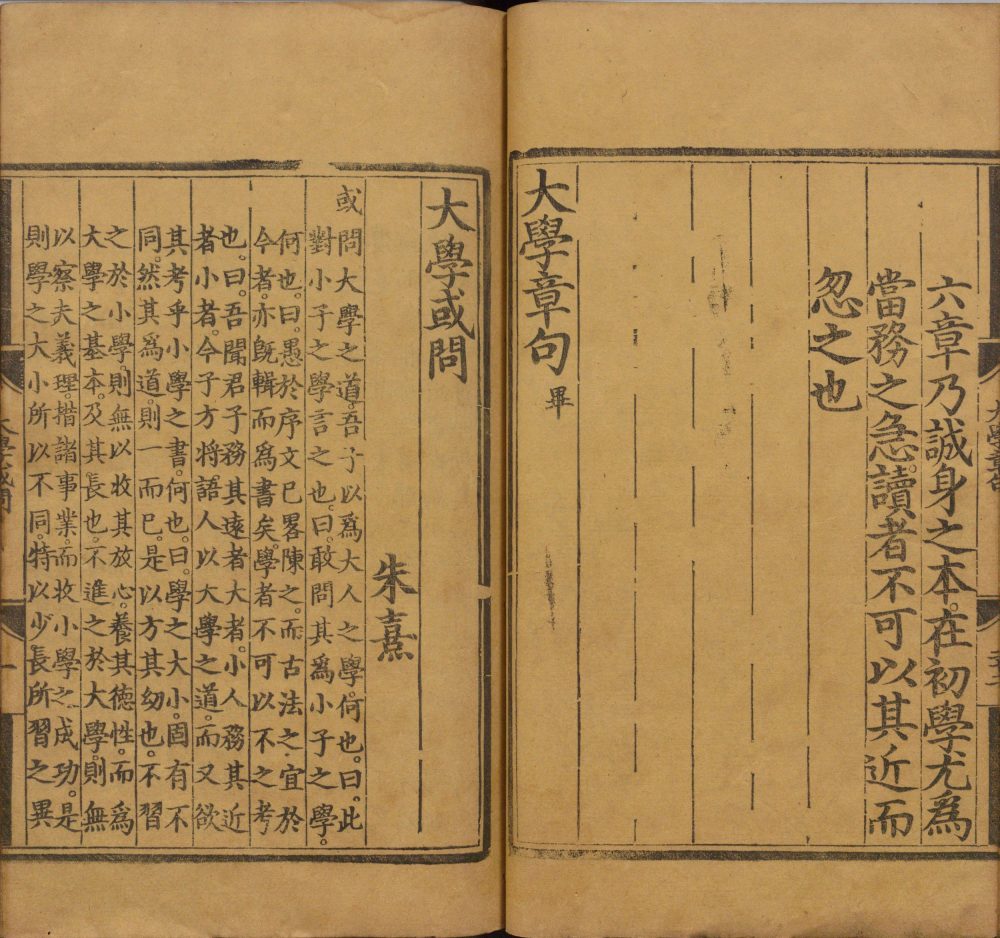 大學章句
六章乃誠身之本。在初學尤爲
當務之急。讀者不可以其近而
忽之也
大學章句 畢
大學或問
朱熹
或問大學之道。吾子以爲大人之學。何也。曰。此
對小子之學言之也。曰。敢問其爲小子之學。
何也。曰。愚於序文已畧陳之。而古法之宜於
今者。亦旣輯而爲書矣。學者不可以不之考
也。曰。吾聞君子務其遠者大者。小人務其近
者小者。今子方將語人以大學之道。而又欲
其考乎小學之書。何也。曰。學之大小。固有不
同。然其爲道。則一而已。是以方其幼也。不習
之於小學。則無以收其放心。養其德性。而爲
大學之基本。及其長也。不進之於大學。則無
以察夫義理。措諸事業。而收小學之成功。是
則學之大小所以不同。特以少長所習之異
大學或問
一